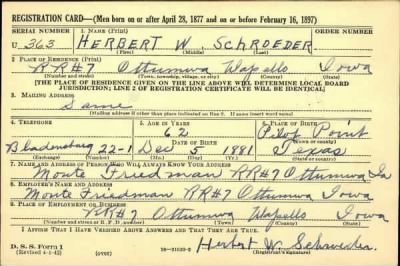 REGISTRATION CARD—(Men born on or after April 28, 1877 and on or before February 16, 1897)
SERIAL NUMBER 1. NAME (Print) ORDER NUMBER
U 363 HERBERT W SCHROEDER
(First) (Middle) (Last)
2. PLACE OF RESIDENCE (Print)
RR#7 Ottumwa Wapello Iowa
(Number and street) (Town, township, village, or city) (County) (State)
[THE PLACE OF RESIDENCE GIVEN ON THE LINE ABOVE WILL DETERMINE LOCAL BOARD
JURISDICTION; LINE 2 OF REGISTRATION CERTIFICATE WILL BE IDENTICAL]
3. MAILING ADDRESS
Same
(Mailing address if other than place indicated on line 2. If same insert word same)
4. TELEPHONE 5. AGE IN YEARS 6. PLACE OF BIRTH
62 Pilot Point
Bladensburg 22-1 DATE OF BIRTH
Dec 5 1881 Texas
(Exchange) (Number) (Mo.) (Day) (Yr.) (State or country)
7. NAME AND ADDRESS OF PERSON WHO WILL ALWAYS KNOW YOUR ADDRESS
Monte Friedman RR#7 Ottumwa Ia
8. EMPLOYER'S NAME AND ADDRESS
Monte Friedman RR#7 Ottumwa Iowa
9. PLACE OF EMPLOYMENT OR BUSINESS
RR#7 Ottumwa Wapello Iowa
(Number and street or R. F. D. number) (Town) (County) (State)
I AFFIRM THAT I HAVE VERIFIED ABOVE ANSWERS AND THAT THEY ARE TRUE.
D. S. S. FORM 1
(Revised 4-1-42) (over) Herbert W. Schroeder
(Registrant's signature)